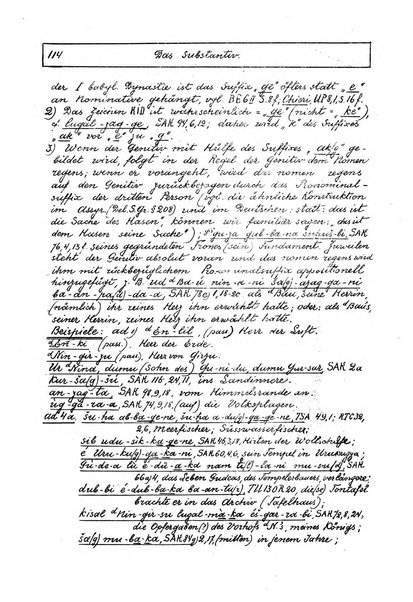 114 Das Substantiv.
der I babyl. Dynastie ist das Suffix „ge“ öfters statt „e“
an Nominative gehängt, vgl. BE 6II S. 8f, Chiera, UP 8,1, S. 16f.
2) Das Zeichen KID ist wahrscheinlich = „ge“ (nicht = „ke“),
cf. lugal-zag-ge, SAK 94,6,12; daher wird „k“ des Suffixes
„ak“ vor „e“ zu „g“.
3) Wenn der Genitiv mit Hülfe des Suffixes „ak/g“ ge-
bildet wird, folgt in der Regel der Genitiv dem Nomen
regens; wenn er vorangeht, wird das nomen regens
auf den Genitiv zurückbezogen durch das Pronominal-
suffix der dritten Person (vgl. die ähnliche Konstruktion
im Assyr. (Del. S. Gr. § 208) und im Deutschen: statt: das ist
die Sache des Hasen, können wir familiär sagen: das ist
dem Hasen seine Sache“); gu-za gub-ba-na suhuš-bi, SAK
76,4,13f. seines gegründeten Trones (sein) Fundament. Zuweilen
steht der Genitiv absolut voran und das nomen regens wird
ihm mit rückbezüglichem Pronominalsuffix appositionell
hinzugefügt, z. B. ud dBa-ú nin-a-ni šà(g)-azag-ga-ni
ba-an- -da-a, SAK 18-20 als dBau, seine Herrin,
(nämlich) ihr reiner Herz ihn erwählt hatte, oder: als dBaus,
seiner Herrin, reines Herz ihn erwählt hatte.
Beispiele: ad 1) dEn-líl, (pau) Herr der Luft.
dEn-ki (pau). Herr der Erde.
dNin-gir-zu (pau). Herr von Girsu.
Ur dNina, dumu (Sohn des) Gu-ni-du, dumu Gur-sar SAK 2a
Kur-šà(g)-šu, SAK 116,24,11, ins Landinnere.
an-zag-ta, SAK 98,9,18. vom Himmelsrande an.
ug-ga-ra-a, SAK 74,9,18, (auf) die Volksplagen.
ad 4a, šu-ha ab-ba-ge-ne, šu-ha a-du(g)-ga-ge-ne, TSA 49,1; RTC 32,
2,6, Meerfischer; Süsswasserfischer;
sib udu-sik-ka-ge-ne, SAK 46,3,18, Hirten der Wollschafe;
é Uru-ku(g)-ga-ka-ni, SAK 60,4,6, sein Tempel in Urukugga;
Gù-de-a lù é-dù-a-ka nam-ti(l)-la-ni mu-su(g), SAK
66g4, das Leben Gudeas, des Tempelerbauers, verlängere;
dub-bi é-dub-ba-ka ba-an-tu(r), TU 130 R 20, die(se) Tontafel
brachte er in das Archiv (Tafelhaus).
kisal dNin-gir-su lugal-mà-ka es-gar-ra-bi, SAK 72,8,24,
die Opfergaben(?) des Vorhofs dN.'s, meines Königs;
šà(g) mu-ba-ka, SAK 84g)2,17, (mitten) in jenem Jahre;